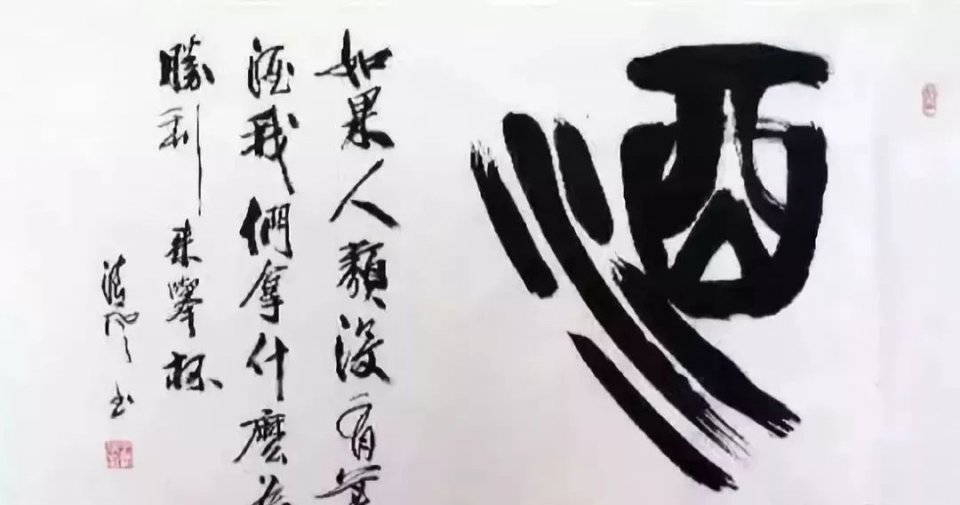 酒
如果人類沒有
酒我們拿什麼為
勝利來舉杯
書